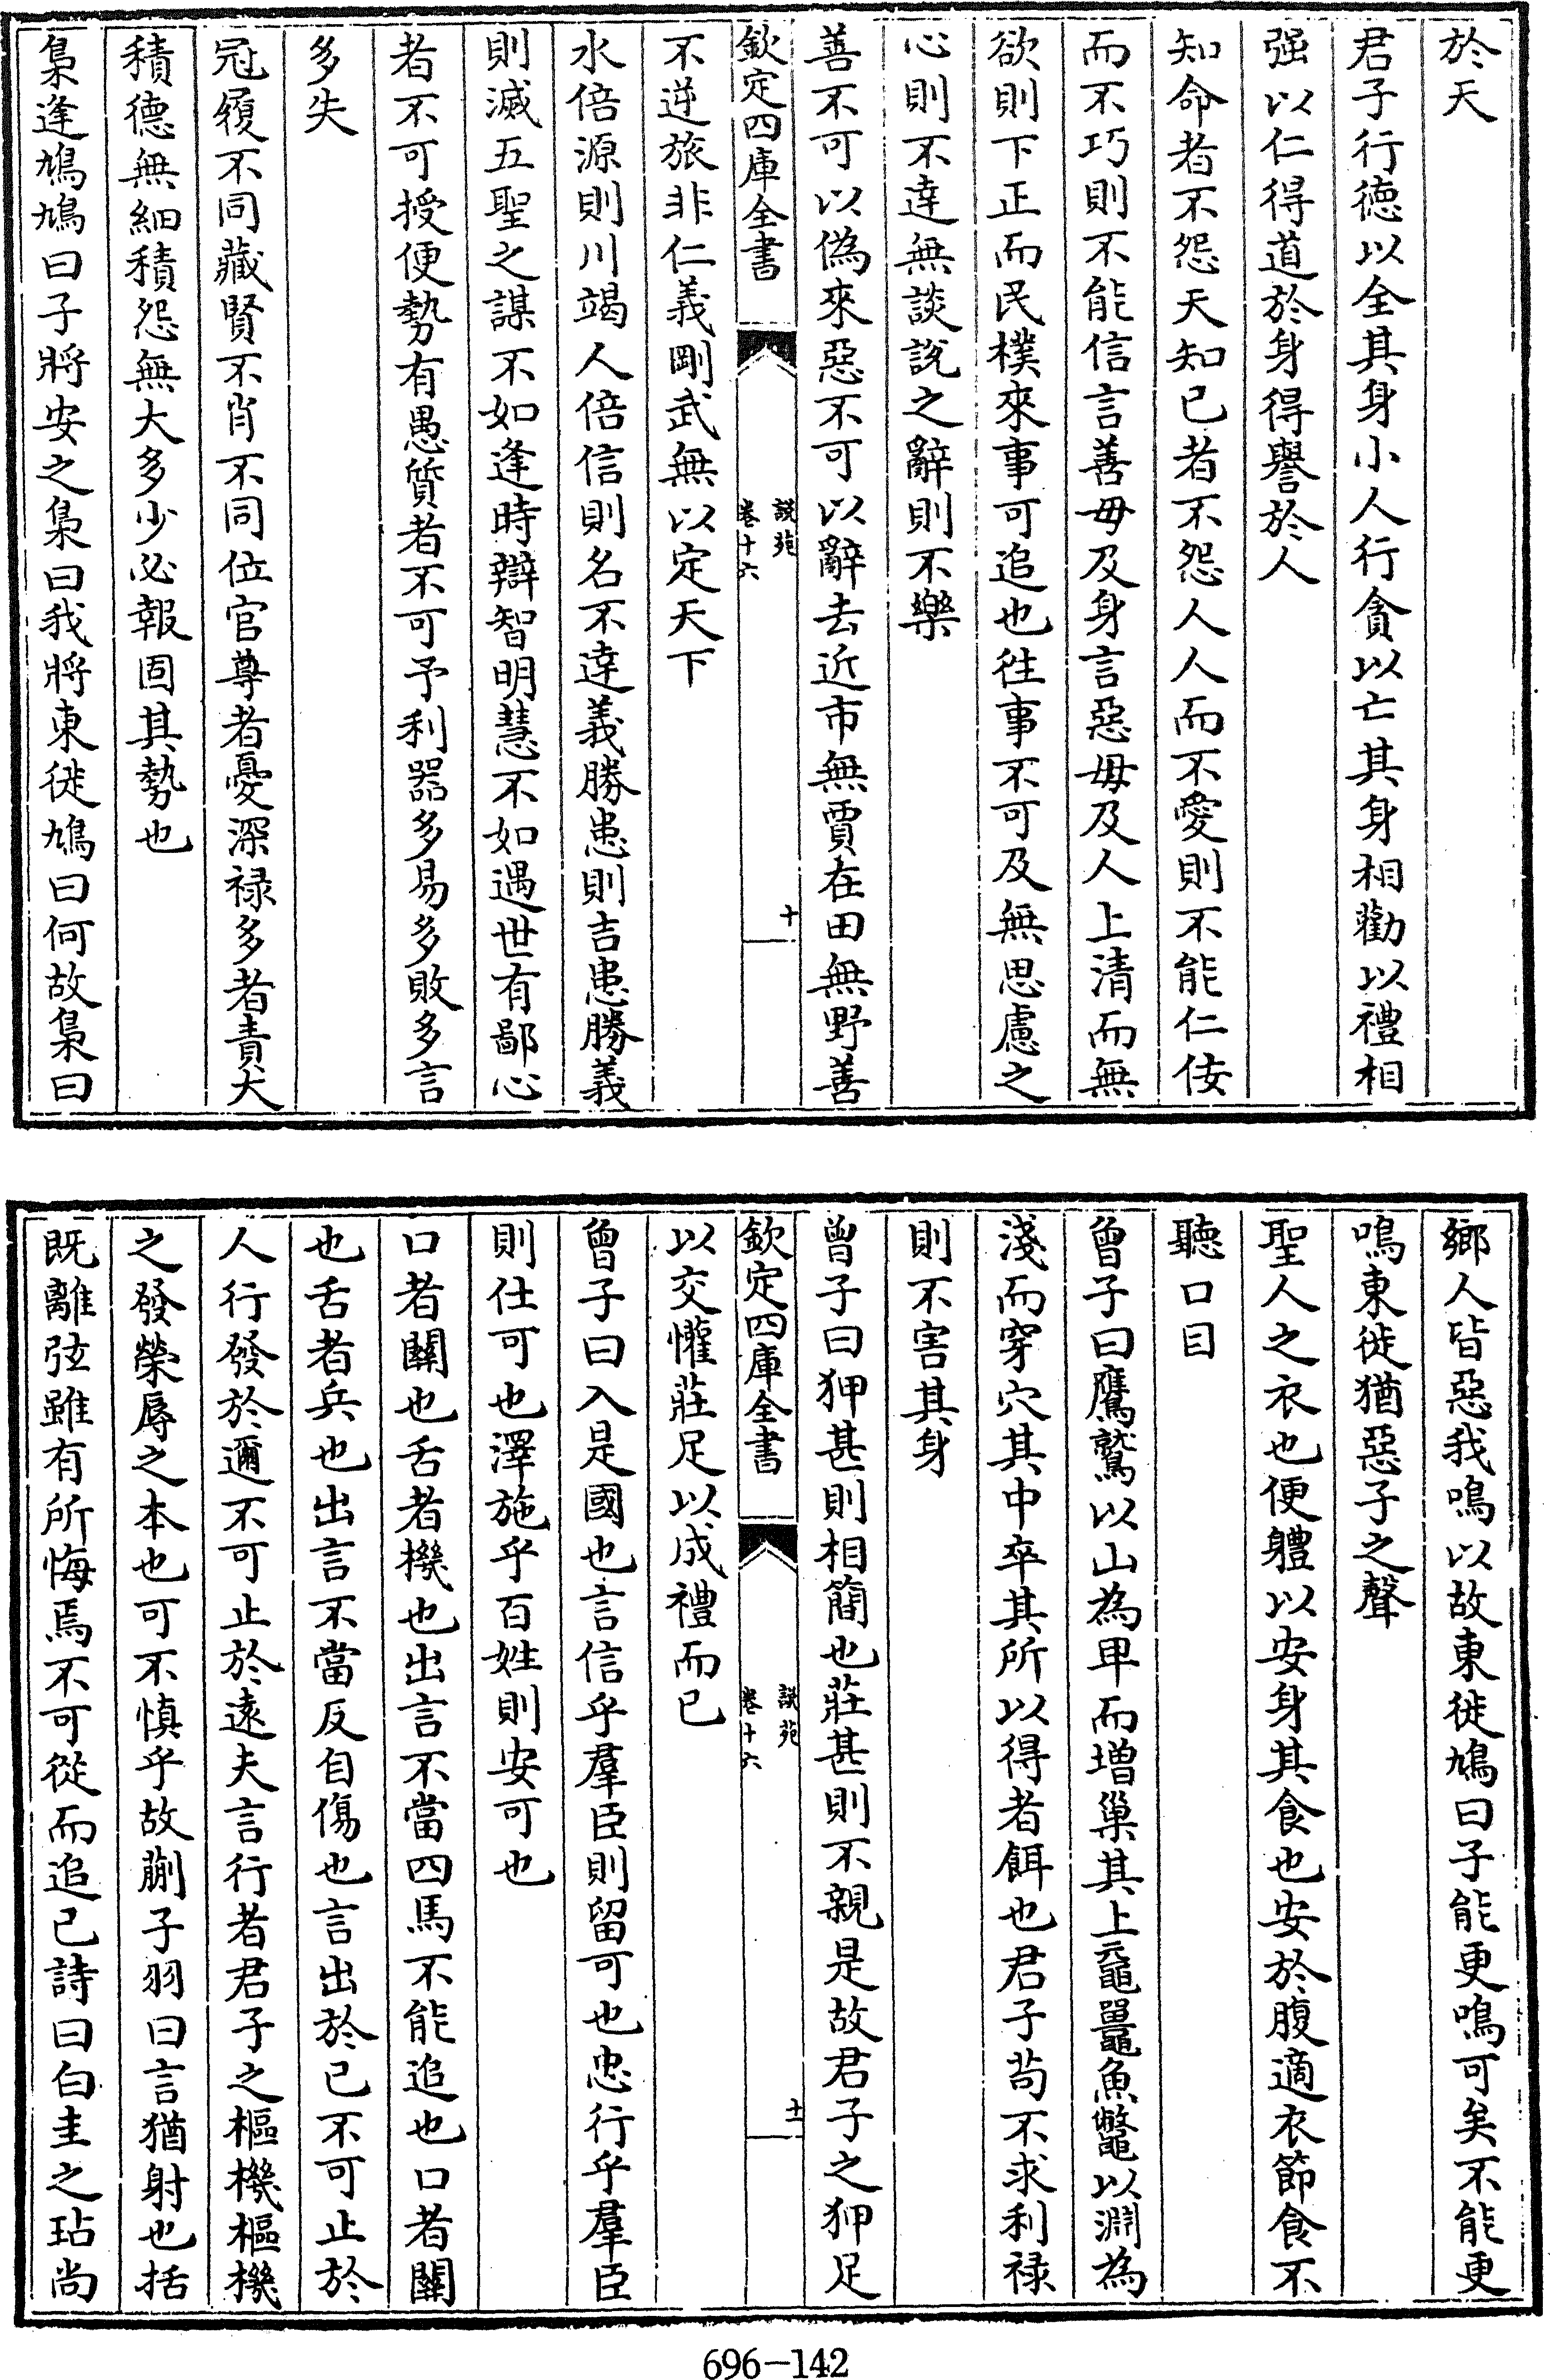 於天
君子行徳以全其身小人行貪以亡其身相勸以禮相
强以仁得道於身得譽於人
知命者不怨天知己者不怨人人而不愛則不能仁佞
而不巧則不能信言善毋及身言惡毋及人上清而無
欲則下正而民樸來事可追也往事不可及無思慮之
心則不達無談說之辭則不樂
善不可以偽來惡不可以辭去近市無賈在田無野善
欽定四庫全書
說苑
卷十六
十
不逆旅非仁義剛武無以定天下
水倍源則川竭人倍信則名不達義勝患則吉患勝義
則滅五聖之謀不如逢時辯智明慧不如遇世有鄙心
者不可授便勢有愚質者不可予利器多易多敗多言
多失
冠履不同藏賢不肖不同位官尊者憂深禄多者責大
積德無細積怨無大多少必報固其勢也
梟逢鳩鳩曰子將安之梟曰我將東徙鳩曰何故梟曰
鄉人皆惡我鳴以故東徙鳩曰子能更鳴可矣不能更
鳴東徙猶惡子之聲
聖人之衣也便軆以安身其食也安於腹適衣節食不
聽口目
曾子曰鷹鷲以山為卑而增巢其上黿鼉魚鼈以淵為
淺而穿穴其中卒其所以得者餌也君子苟不求利禄
則不害其身
曾子曰狎甚則相簡也莊甚則不親是故君子之狎足
欽定四庫全書
說苑
卷十六
十一
以交懽莊足以成禮而已
曾子曰入是國也言信乎羣臣則留可也忠行乎羣臣
則仕可也澤施乎百姓則安可也
口者關也舌者機也出言不當四馬不能追也口者關
也舌者兵也出言不當反自傷也言出於己不可止於
人行發於邇不可止於遠夫言行者君子之樞機樞機
之發榮辱之本也可不慎乎故蒯子羽曰言猶射也括
既離弦雖有所悔焉不可從而追已詩曰白圭之玷尚
696-142